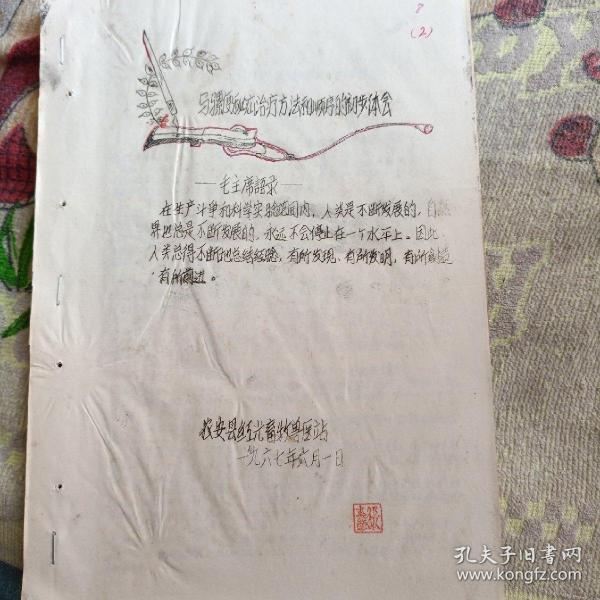 8
(2)
马骡 治疗方法和顺序的初步体会
——毛主席語录——
在生产斗争和科学实验范围内，人类是不断发展的，自然
界也总是不断发展的，永远不会停止在一个水平上。因此，
人类总得不断地总结经验，有所发现、有所发明，有所创造
，有所前进。
农安县红光畜牧兽医站
一九六七年六月一日
孔夫子旧书网
www.kongfz.com